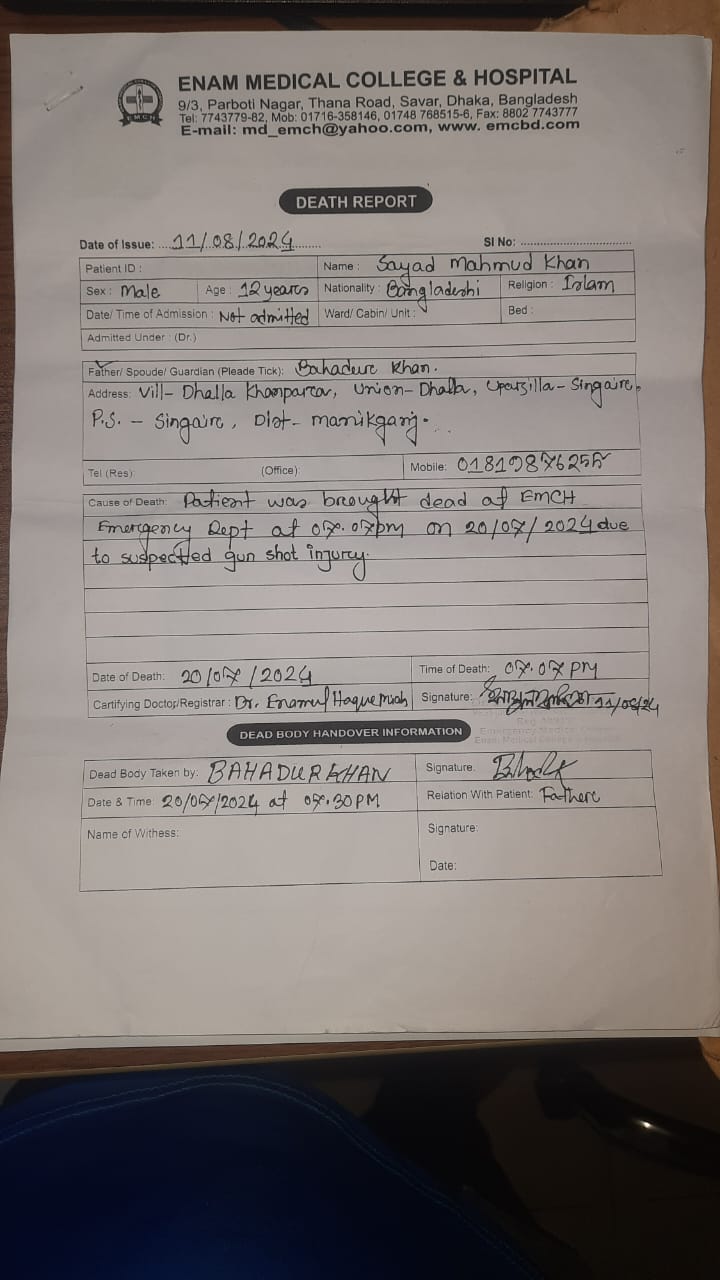 ENAM MEDICAL COLLEGE & HOSPITAL
9/3, Parboti Nagar, Thana Road, Savar, Dhaka, Bangladesh
Tel: 7743779-82, Mob: 01716-358146, 01748 768515-6, Fax: 8802 7743777
E-mail: md_emch@yahoo.com, www. emcbd.com
EMCH
DEATH REPORT
Date of Issue: 11/08/2024 Sl No:
Patient ID : Name : Sayad Mahmud Khan
Sex : Male Age : 12 years Nationality : Bangladeshi Religion : Islam
Date/ Time of Admission : Not admitted Ward/ Cabin/ Unit : Bed :
Admitted Under : (Dr.)
Father/ Spoude/ Guardian (Pleade Tick): Bahadur Khan.
Address: Vill- Dhalla Khanpara, Union- Dhalla, Upazilla- Singair,
P.S. - Singair, Dist- manikganj.
Tel (Res): (Office): Mobile:
Cause of Death: Patient was brought dead at EMCH
Emergency Dept at 07.07pm on 20/07/2024 due
to suspectted gun shot injury.
Date of Death: 20/07/2024 Time of Death: 07.07 PM
Cartifying Doctor/Registrar : Dr. Enamul Haque Miah Signature: 11/08/24
Emergency
DEAD BODY HANDOVER INFORMATION
Dead Body Taken by: BAHADUR KHAN Signature:
Date & Time: 20/07/2024 at 07.30PM Relation With Patient: Father
Name of Withess: Signature:
Date: